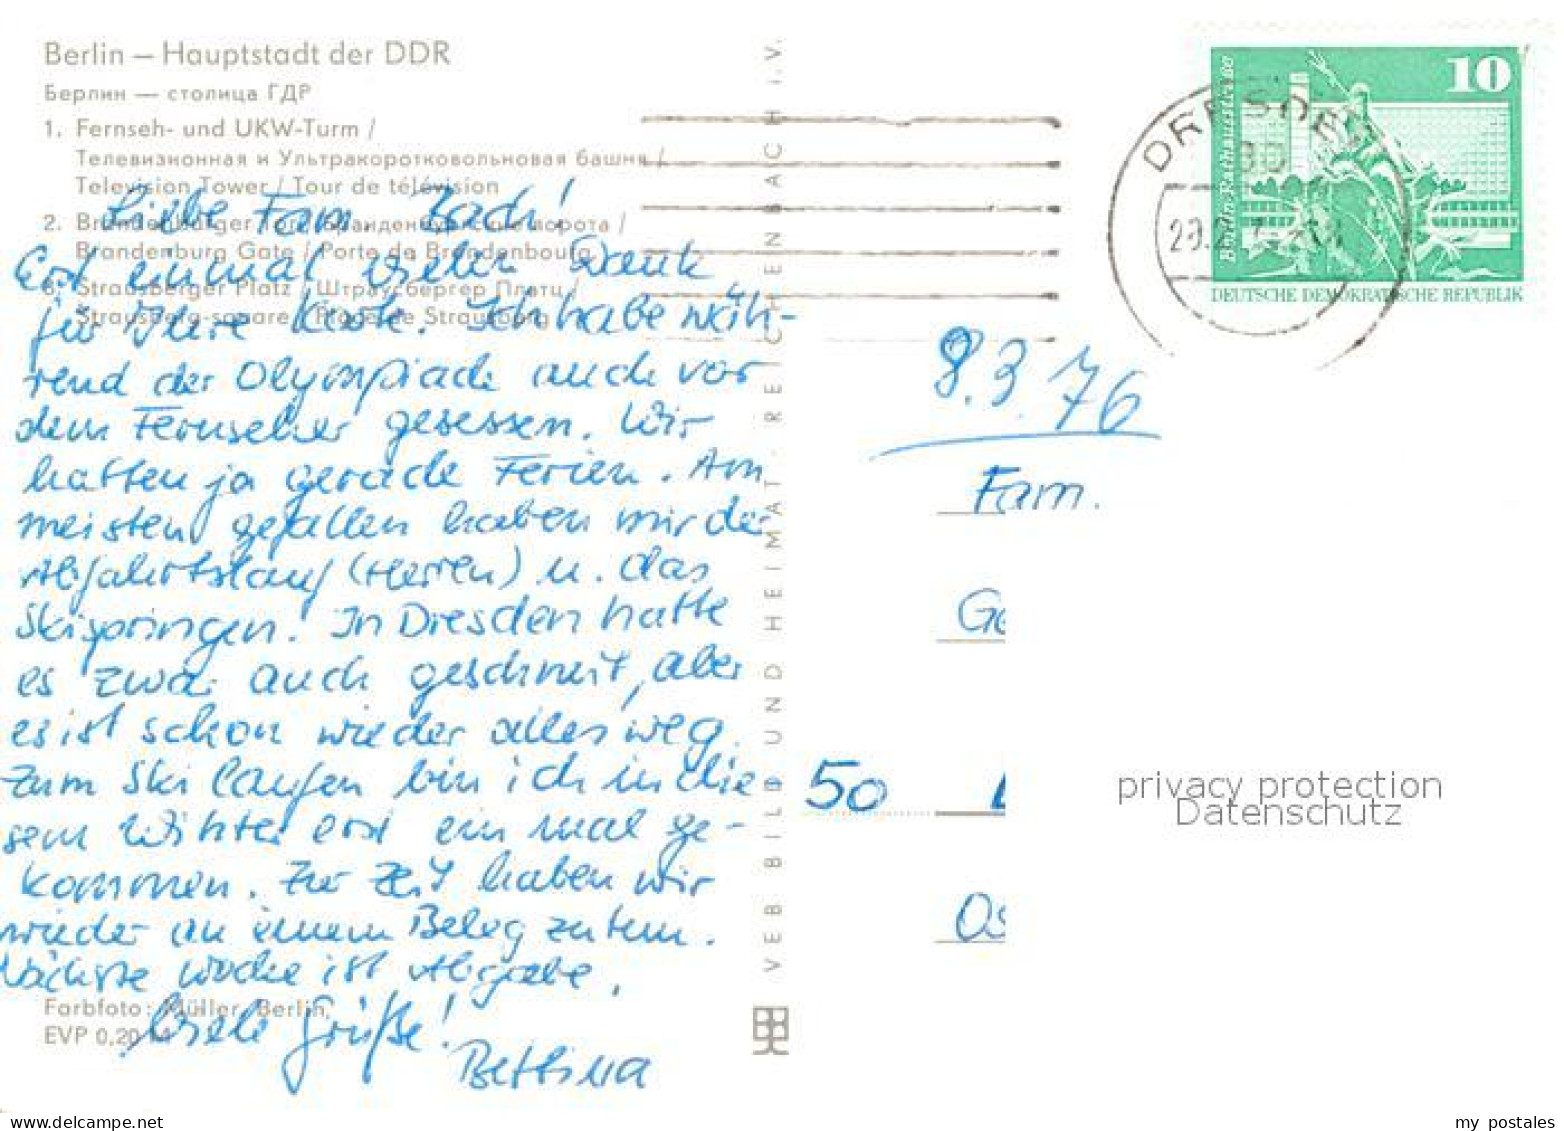 Berlin — Hauptstadt der DDR
Берлин — столица ГДР
1. Fernseh- und UKW-Turm /
Телевизионная и Ультракоротковольновая башня /
Television Tower / Tour de télévision
2. Brandenburger Tor / Бранденбургские ворота /
Brandenburg Gate / Porte de Brandenbourg
3. Strausberger Platz / Штраусбергер Платц /
Strausberg-square / Place de Strausberg
Liebe Fam. Zach!
Erst einmal vielen Dank
für Ihre Karte. Ich habe wäh-
rend der Olympiade auch vor
dem Fernseher gesessen. Wir
hatten ja gerade Ferien. Am
meisten gefallen haben mir der
Abfahrtslauf (Herren) u. das
Skispringen. In Dresden hatte
es zwar auch geschneit, aber
es ist schon wieder alles weg.
Zum Ski laufen bin ich in die
sem Winter erst ein mal ge-
kommen. Zur Zeit haben wir
wieder an einem Beleg zu tun.
Nächste Woche ist Abgabe.
Viele Grüße!
Bettina
Farbfoto: Müller, Berlin
EVP 0,20 M
VEB BILD UND HEIMAT REICHENBACH I.V.
DRESDEN
10
Berlin, Rathausstraße
DEUTSCHE DEMOKRATISCHE REPUBLIK
8.3.76
Fam.
Ge
50
Os
privacy protection
Datenschutz
my postales